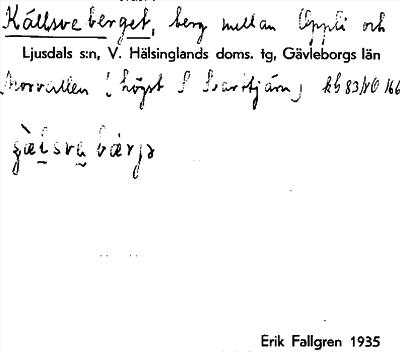 Källsveberget, berg mellan Öppli och
Ljusdals s:n, V. Hälsinglands doms. tg, Gävleborgs län
Morvallen (högst S Svarttjärn) kb 83/VO 166
Erik Fallgren 1935